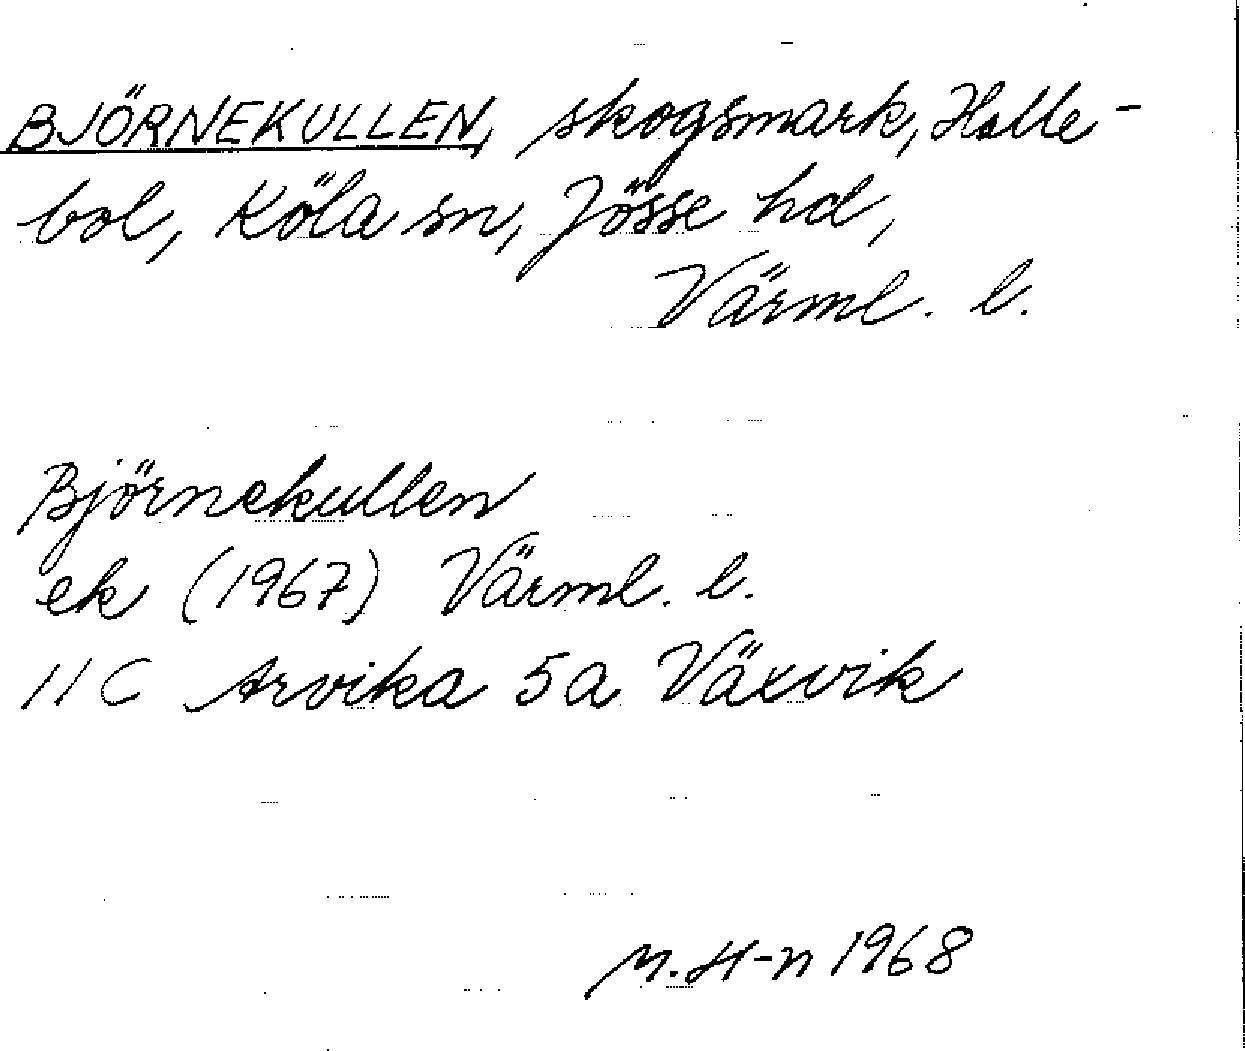 BJÖRNEKULLEN, skogsmark, Halle-
bol, Köla sn, Jösse hd,
Värml. l.
Björnekullen
ek (1967) Värml. l.
11C Arvika 5a Växvik
M. H-n 1968